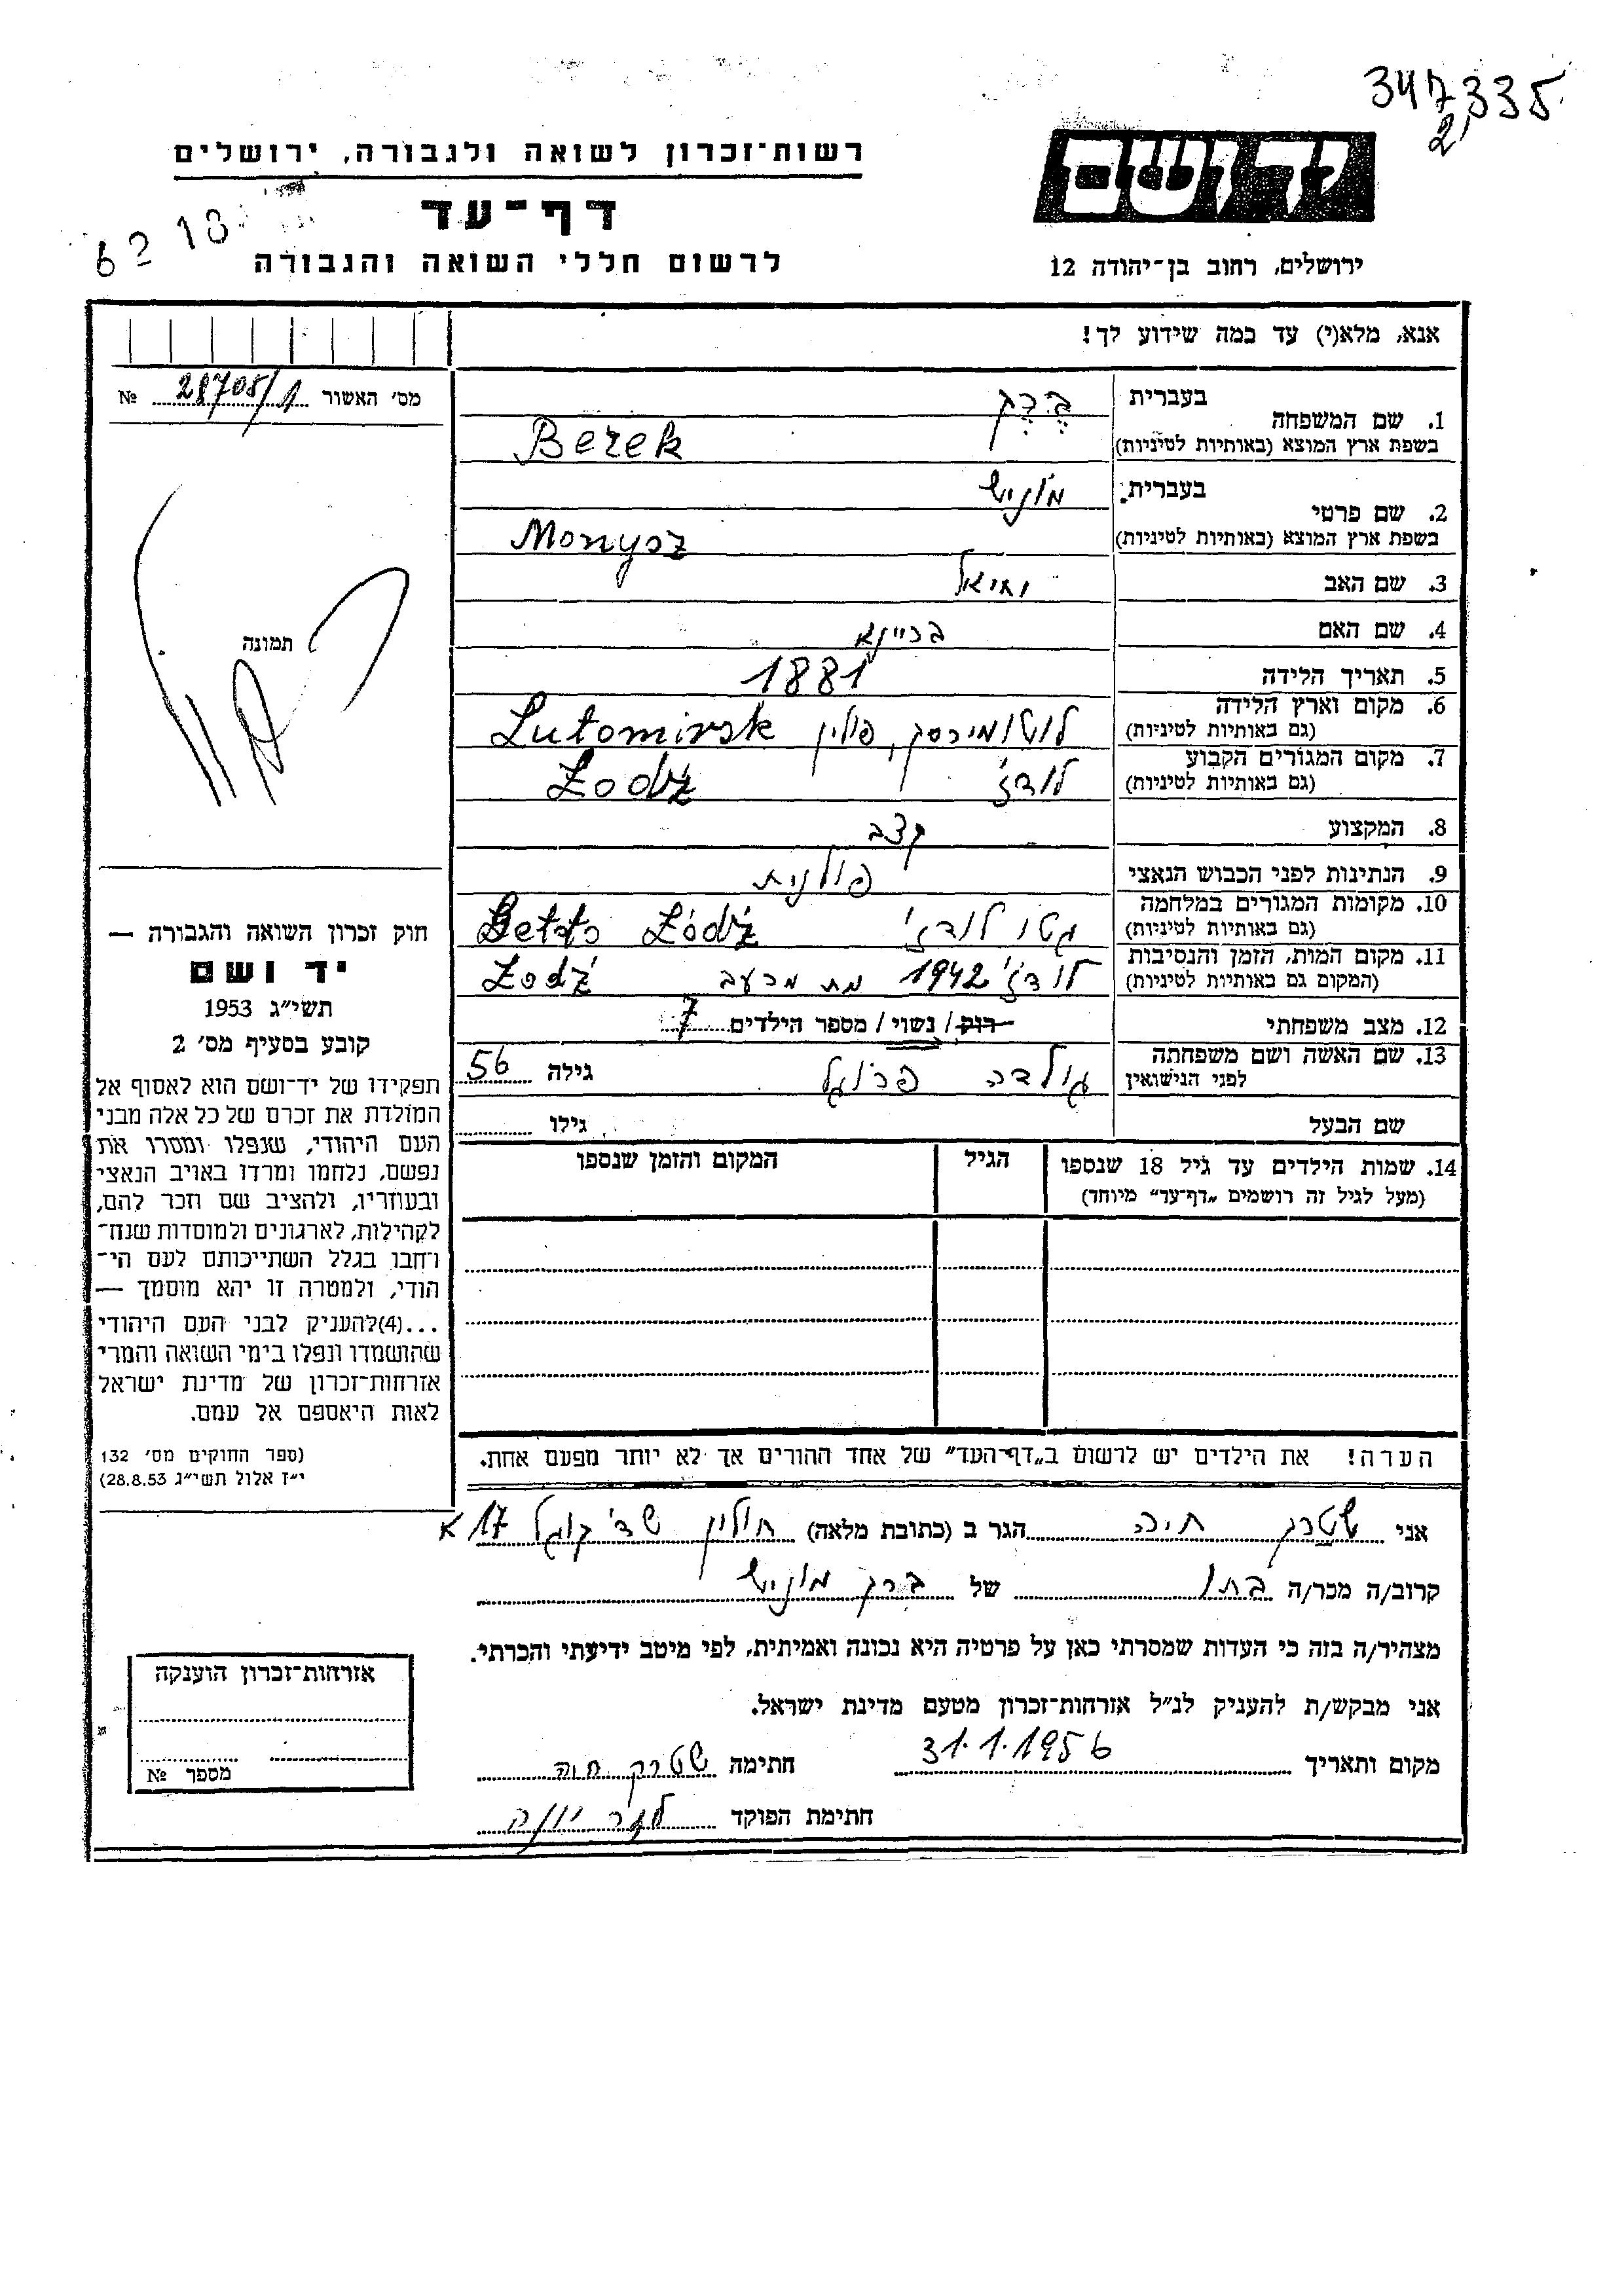 347335
2
רשות־זכרון לשואה ולגבורה, ירושלים
יד ושם
דף־עד
62 18
לרשום חללי השואה והגבורה
ירושלים, רחוב בן־יהודה 12
אנא, מלא(י) עד כמה שידוע לך!
מס׳ האשור 28708/1 №
1. שם המשפחה
בעברית בֶּרֶק
בשפת ארץ המוצא (באותיות לטיניות) Berek
2. שם פרטי
בעברית מוניש
בשפת ארץ המוצא (באותיות לטיניות) Monysz
3. שם האב
4. שם האם
5. תאריך הלידה 1881
6. מקום וארץ הלידה
(גם באותיות לטיניות) לוטומירסק, פולין Lutomirsk
7. מקום המגורים הקבוע
(גם באותיות לטיניות) לודז׳ Łodż
8. המקצוע קצב
9. הנתינות לפני הכבוש הנאצי פולנית
10. מקומות המגורים במלחמה
(גם באותיות לטיניות) גטו לודז׳ Getto Łódż
11. מקום המות, הזמן והנסיבות
(המקום גם באותיות לטיניות) לודז׳ 1942 מת מרעב Łodż
12. מצב משפחתי רווק / נשוי / מספר הילדים 7
13. שם האשה ושם משפחתה
לפני הנישואין גולדה פרוגל גילה 56
שם הבעל גילו
14. שמות הילדים עד גיל 18 שנספו
(מעל לגיל זה רושמים „דף־עד״ מיוחד)
הגיל
המקום והזמן שנספו
תמונה
חוק זכרון השואה והגבורה —
יד ושם
תשי״ג 1953
קובע בסעיף מס׳ 2
תפקידו של יד־ושם הוא לאסוף אל
המולדת את זכרם של כל אלה מבני
העם היהודי, שנפלו ומסרו את
נפשם, נלחמו ומרדו באויב הנאצי
ובעוזריו, ולהציב שם וזכר להם,
לקהילות, לארגונים ולמוסדות שנח־
רחבו בגלל השתייכותם לעם הי־
הודי, ולמטרה זו יהא מוסמך —
...(4)להעניק לבני העם היהודי
שהושמדו ונפלו בימי השואה והמרי
אזרחות־זכרון של מדינת ישראל
לאות היאספם אל עמם.
(ספר החוקים מס׳ 132
י״ז אלול תשי״ג 28.8.53)
הערה! את הילדים יש לרשום ב„דף־העד״ של אחד ההורים אך לא יותר מפעם אחת.
אני שטרק חיה הגר ב (כתובת מלאה) חולון שד׳ קוגל 17 א
קרוב/ה מכר/ה בתו של ברק מוניש
מצהיר/ה בזה כי העדות שמסרתי כאן על פרטיה היא נכונה ואמיתית, לפי מיטב ידיעתי והכרתי.
אני מבקש/ת להעניק לנ״ל אזרחות־זכרון מטעם מדינת ישראל.
מקום ותאריך 31.1.1956 חתימה שטרק חיה
חתימת הפוקד
אזרחות־זכרון הוענקה
מספר №